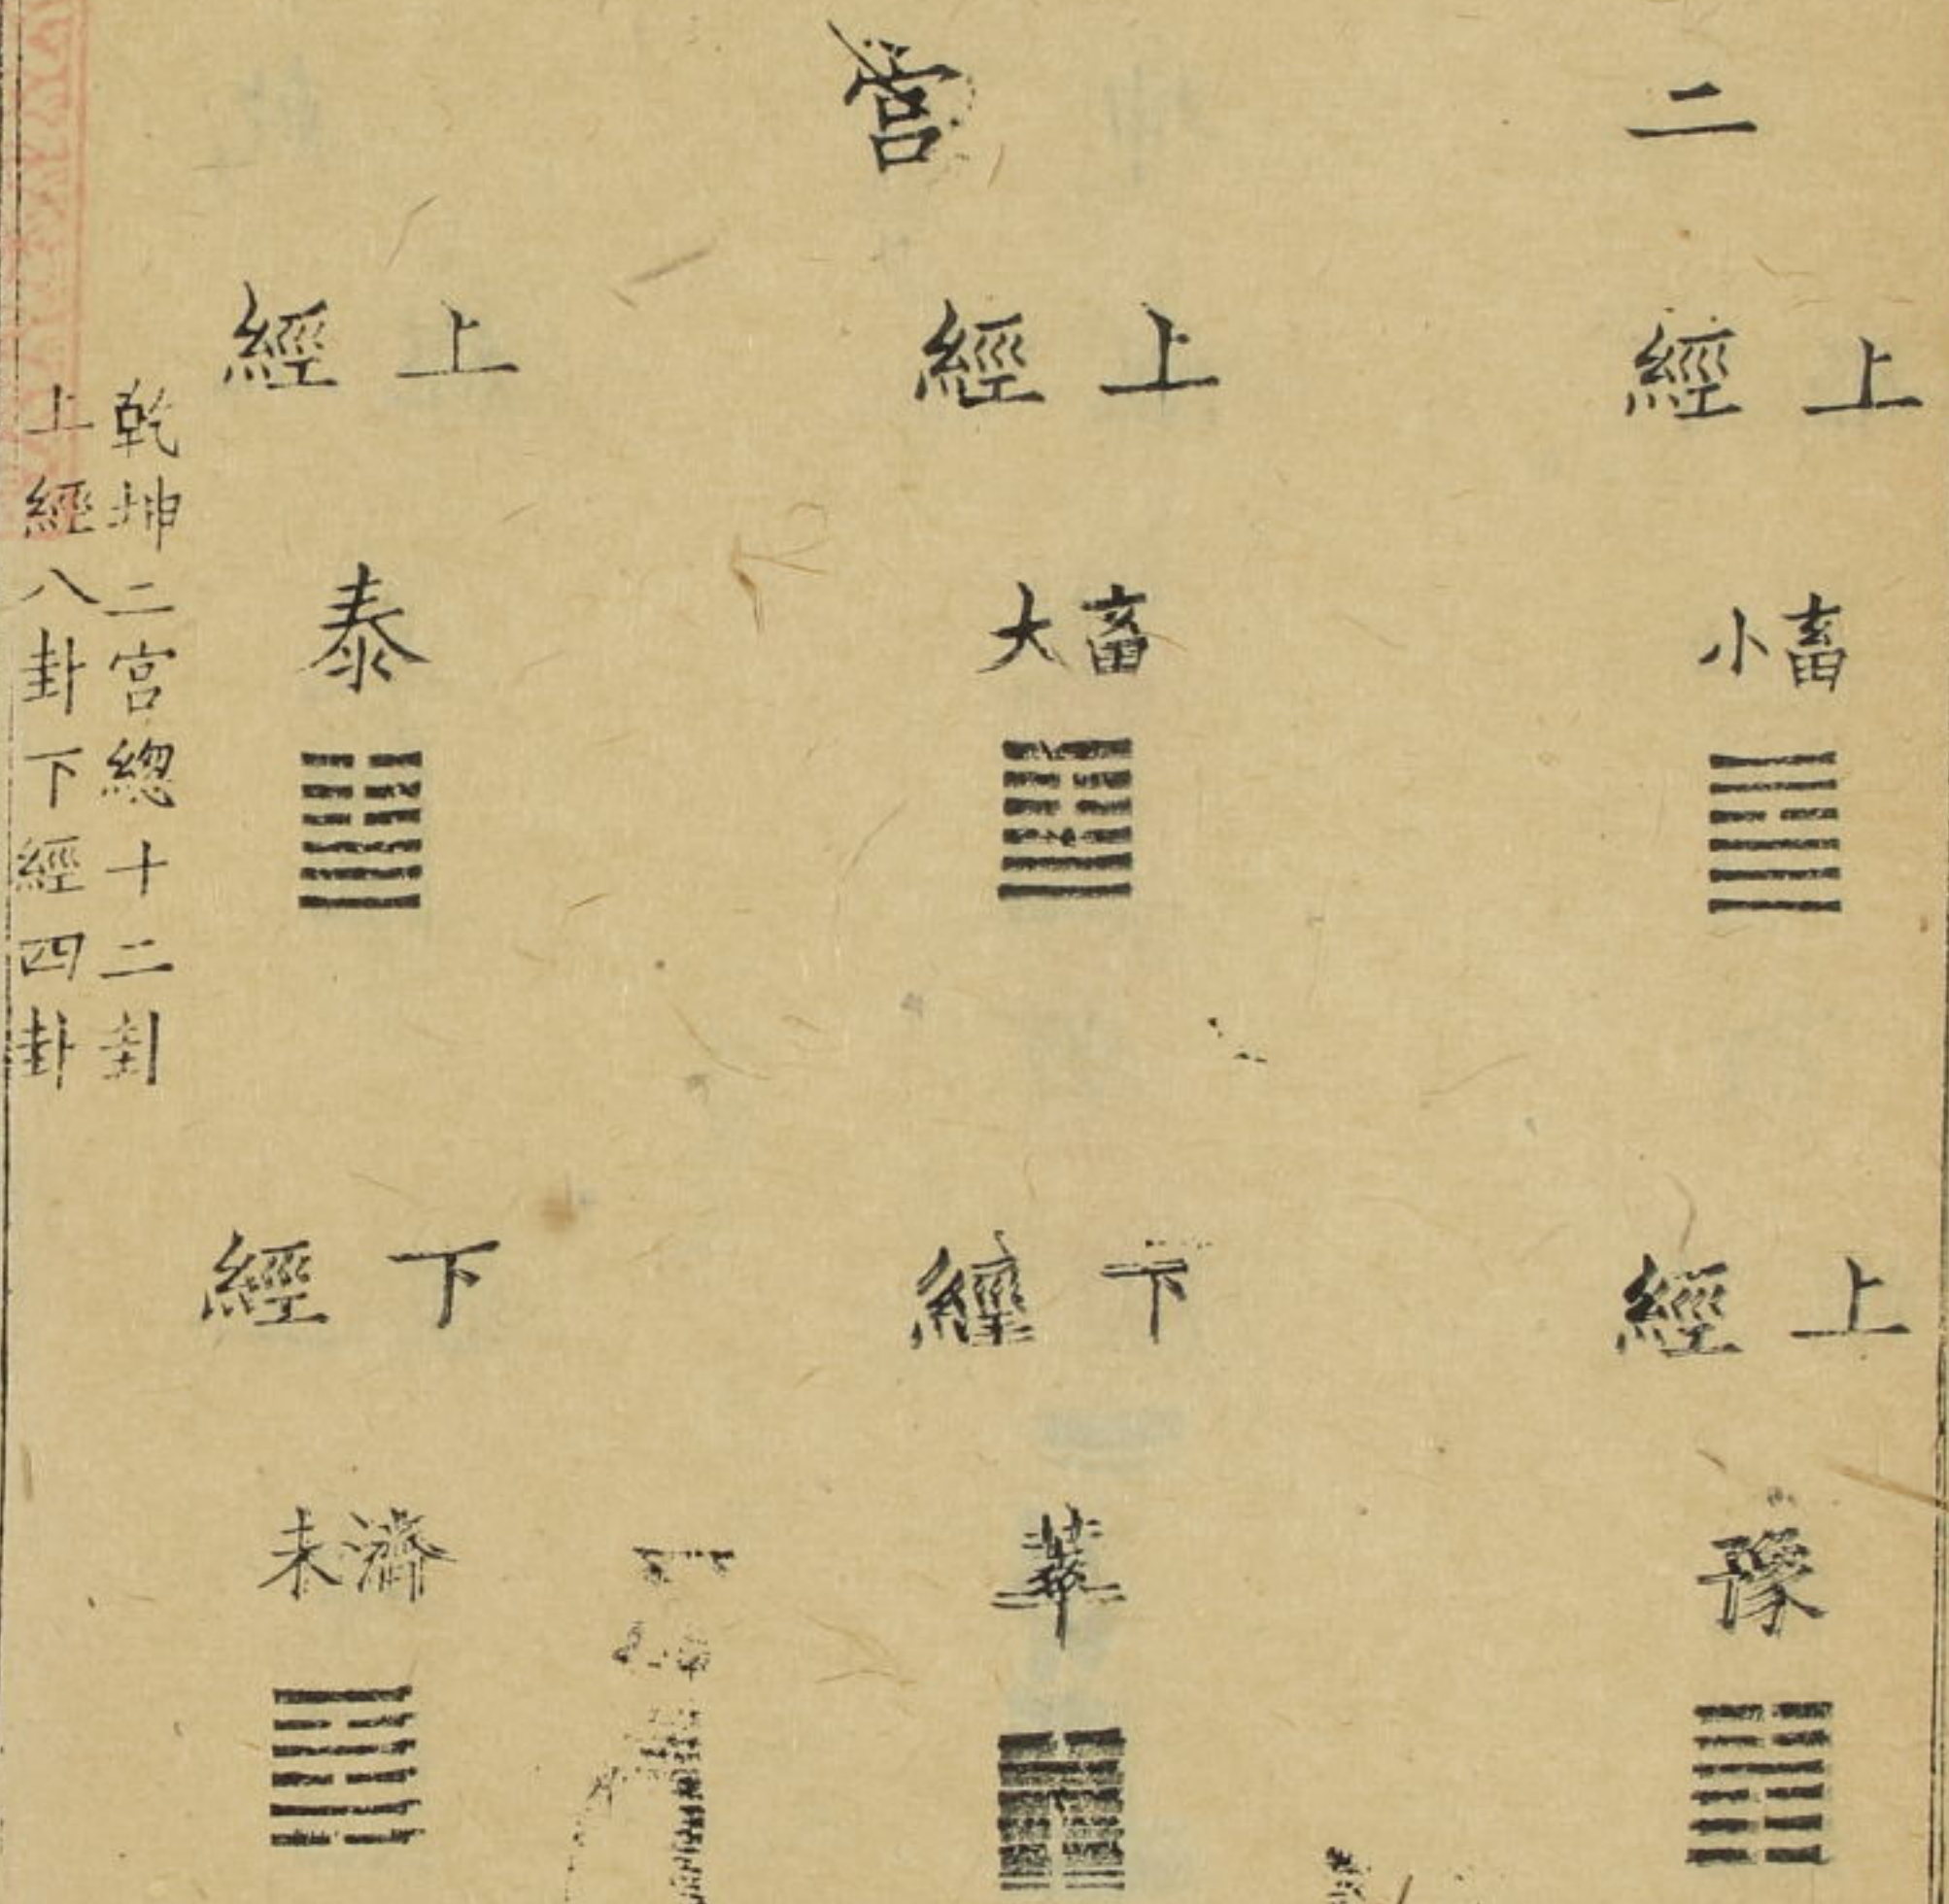 二
宮
上經
小畜
上經
大畜
上經
泰
上經
豫
下經
萃
下經
未濟
乾坤二宮總十二卦
上經八卦下經四卦